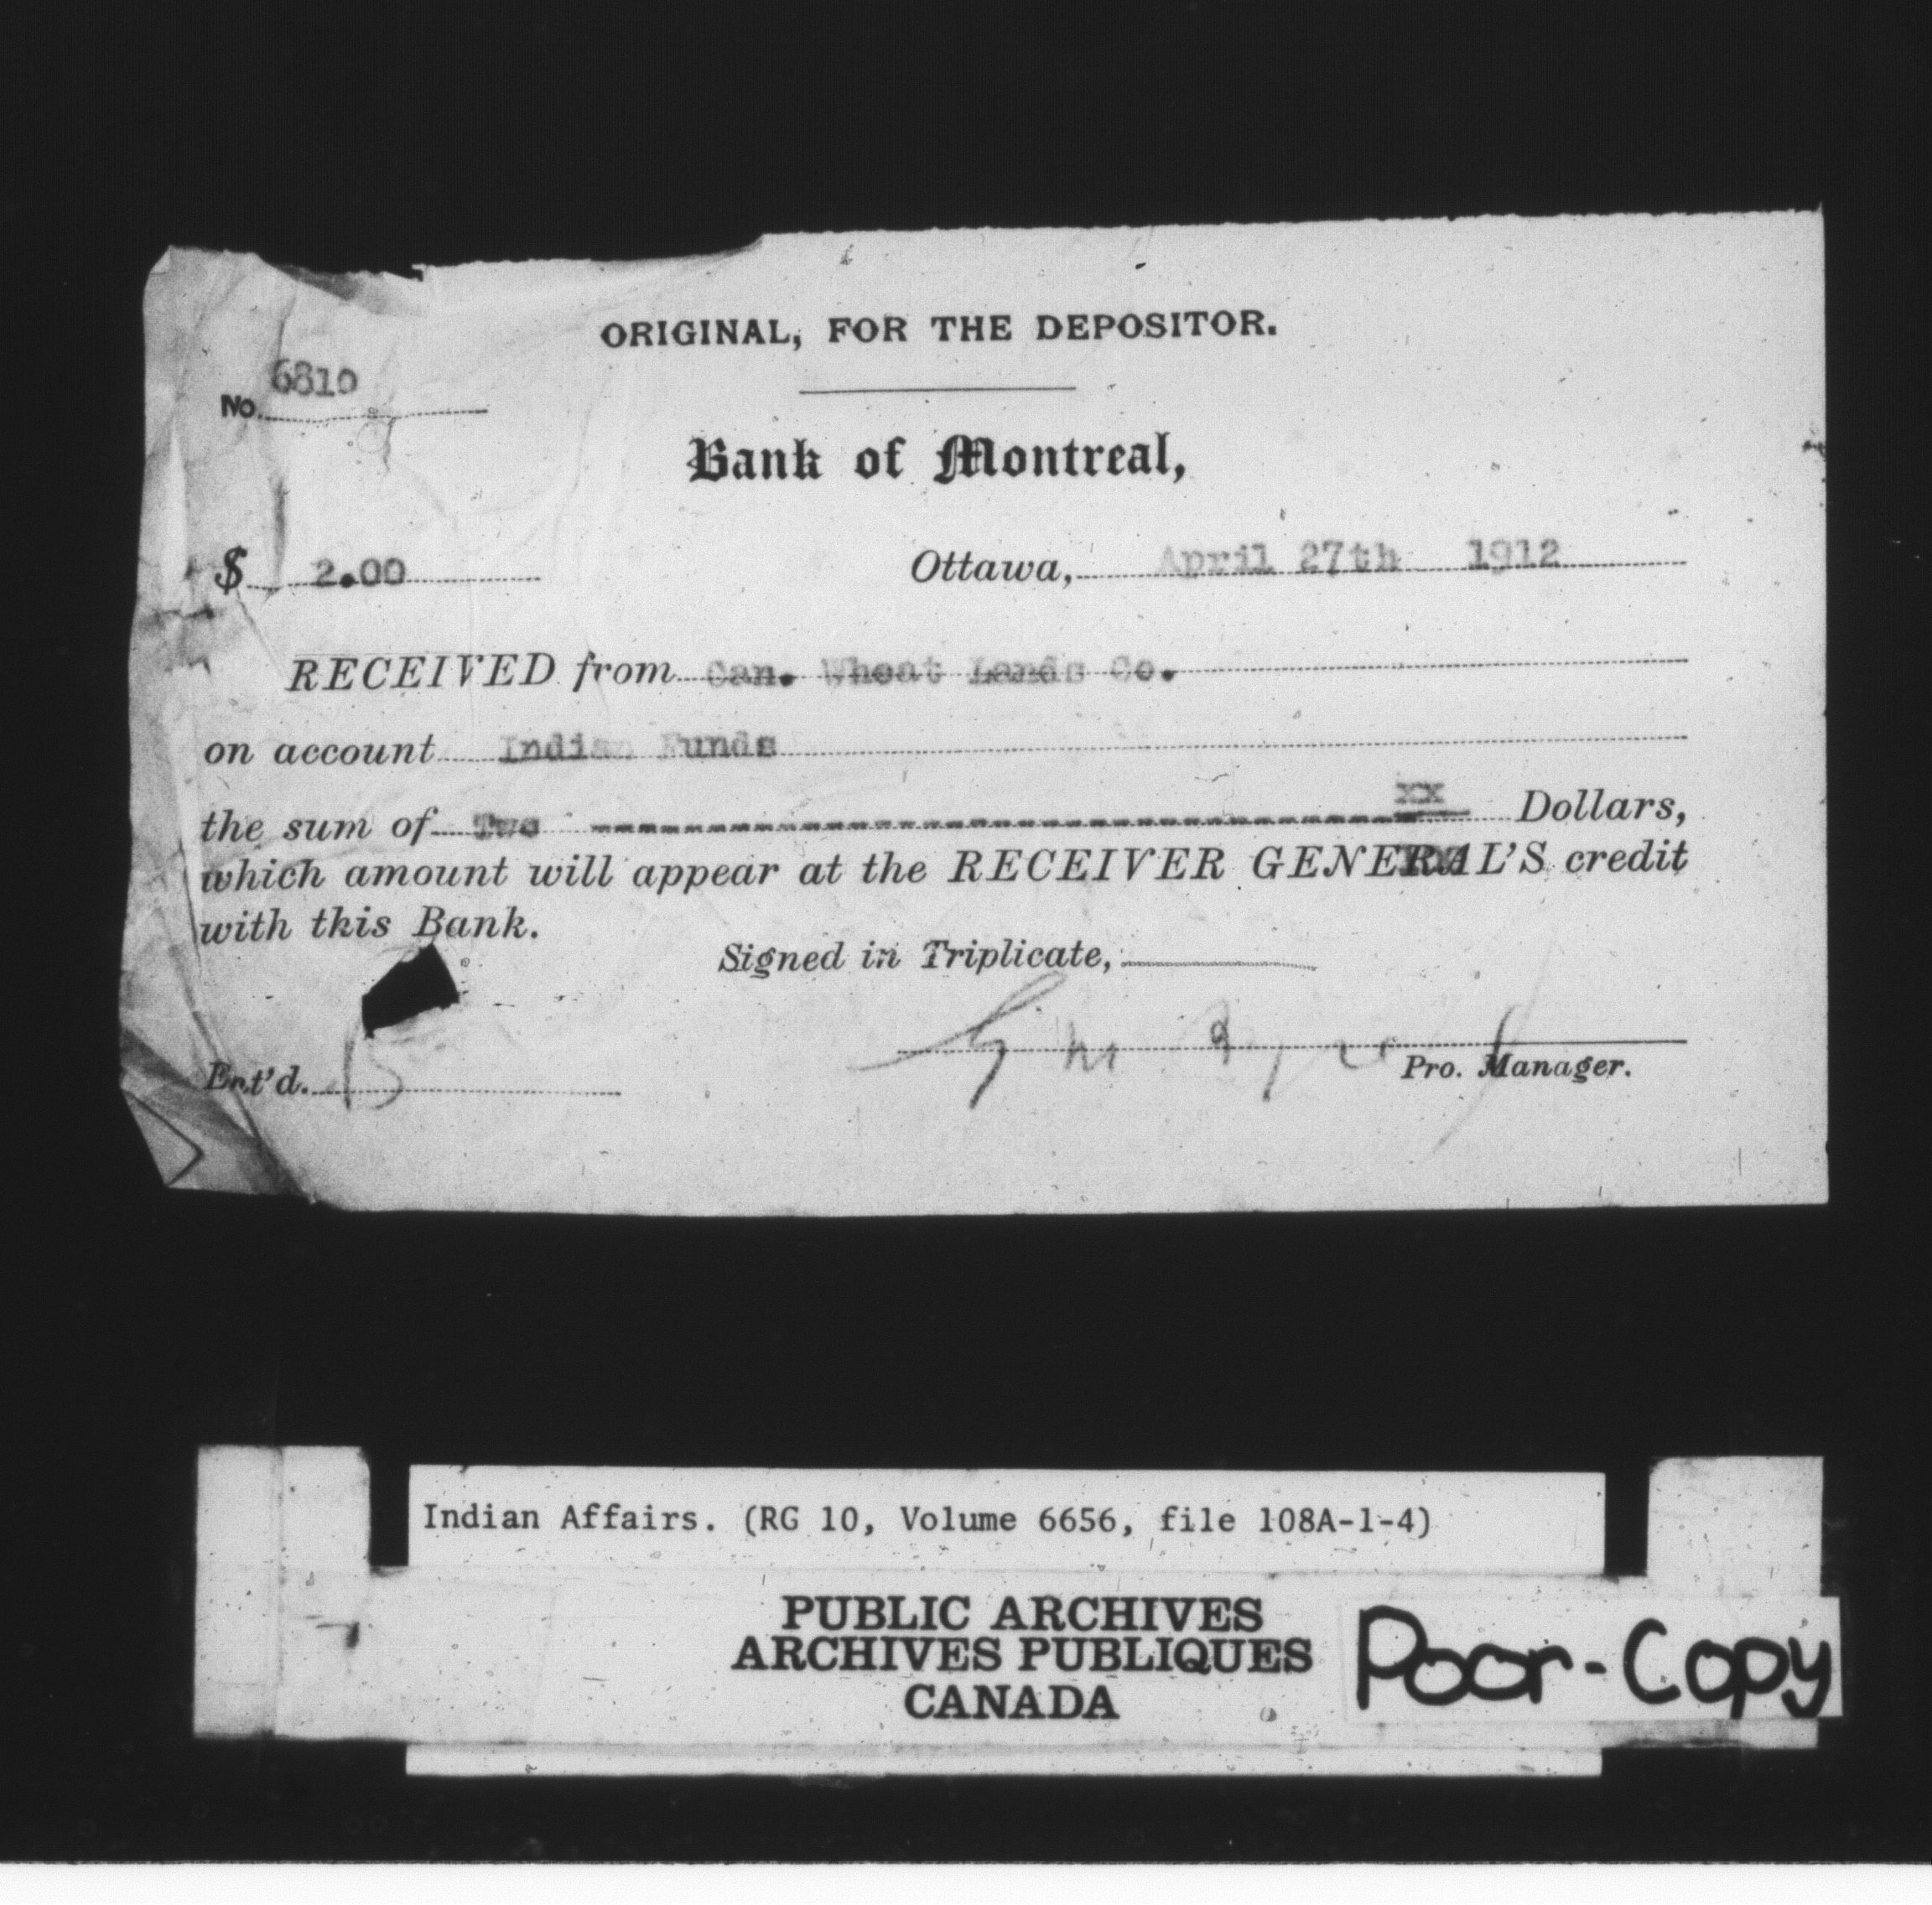 ORIGINAL, FOR THE DEPOSITOR.
No. 6810
Bank of Montreal,
$ 2.00 Ottawa, April 27th 1912
RECEIVED from Can. Wheat Lands Co.
on account Indian Funds
the sum of Two xx Dollars,
which amount will appear at the RECEIVER GENERAL'S credit
with this Bank.
Signed in Triplicate,
Ent'd. Pro. Manager.
Indian Affairs. (RG 10, Volume 6656, file 108A-1-4)
PUBLIC ARCHIVES
ARCHIVES PUBLIQUES
CANADA
Poor-Copy